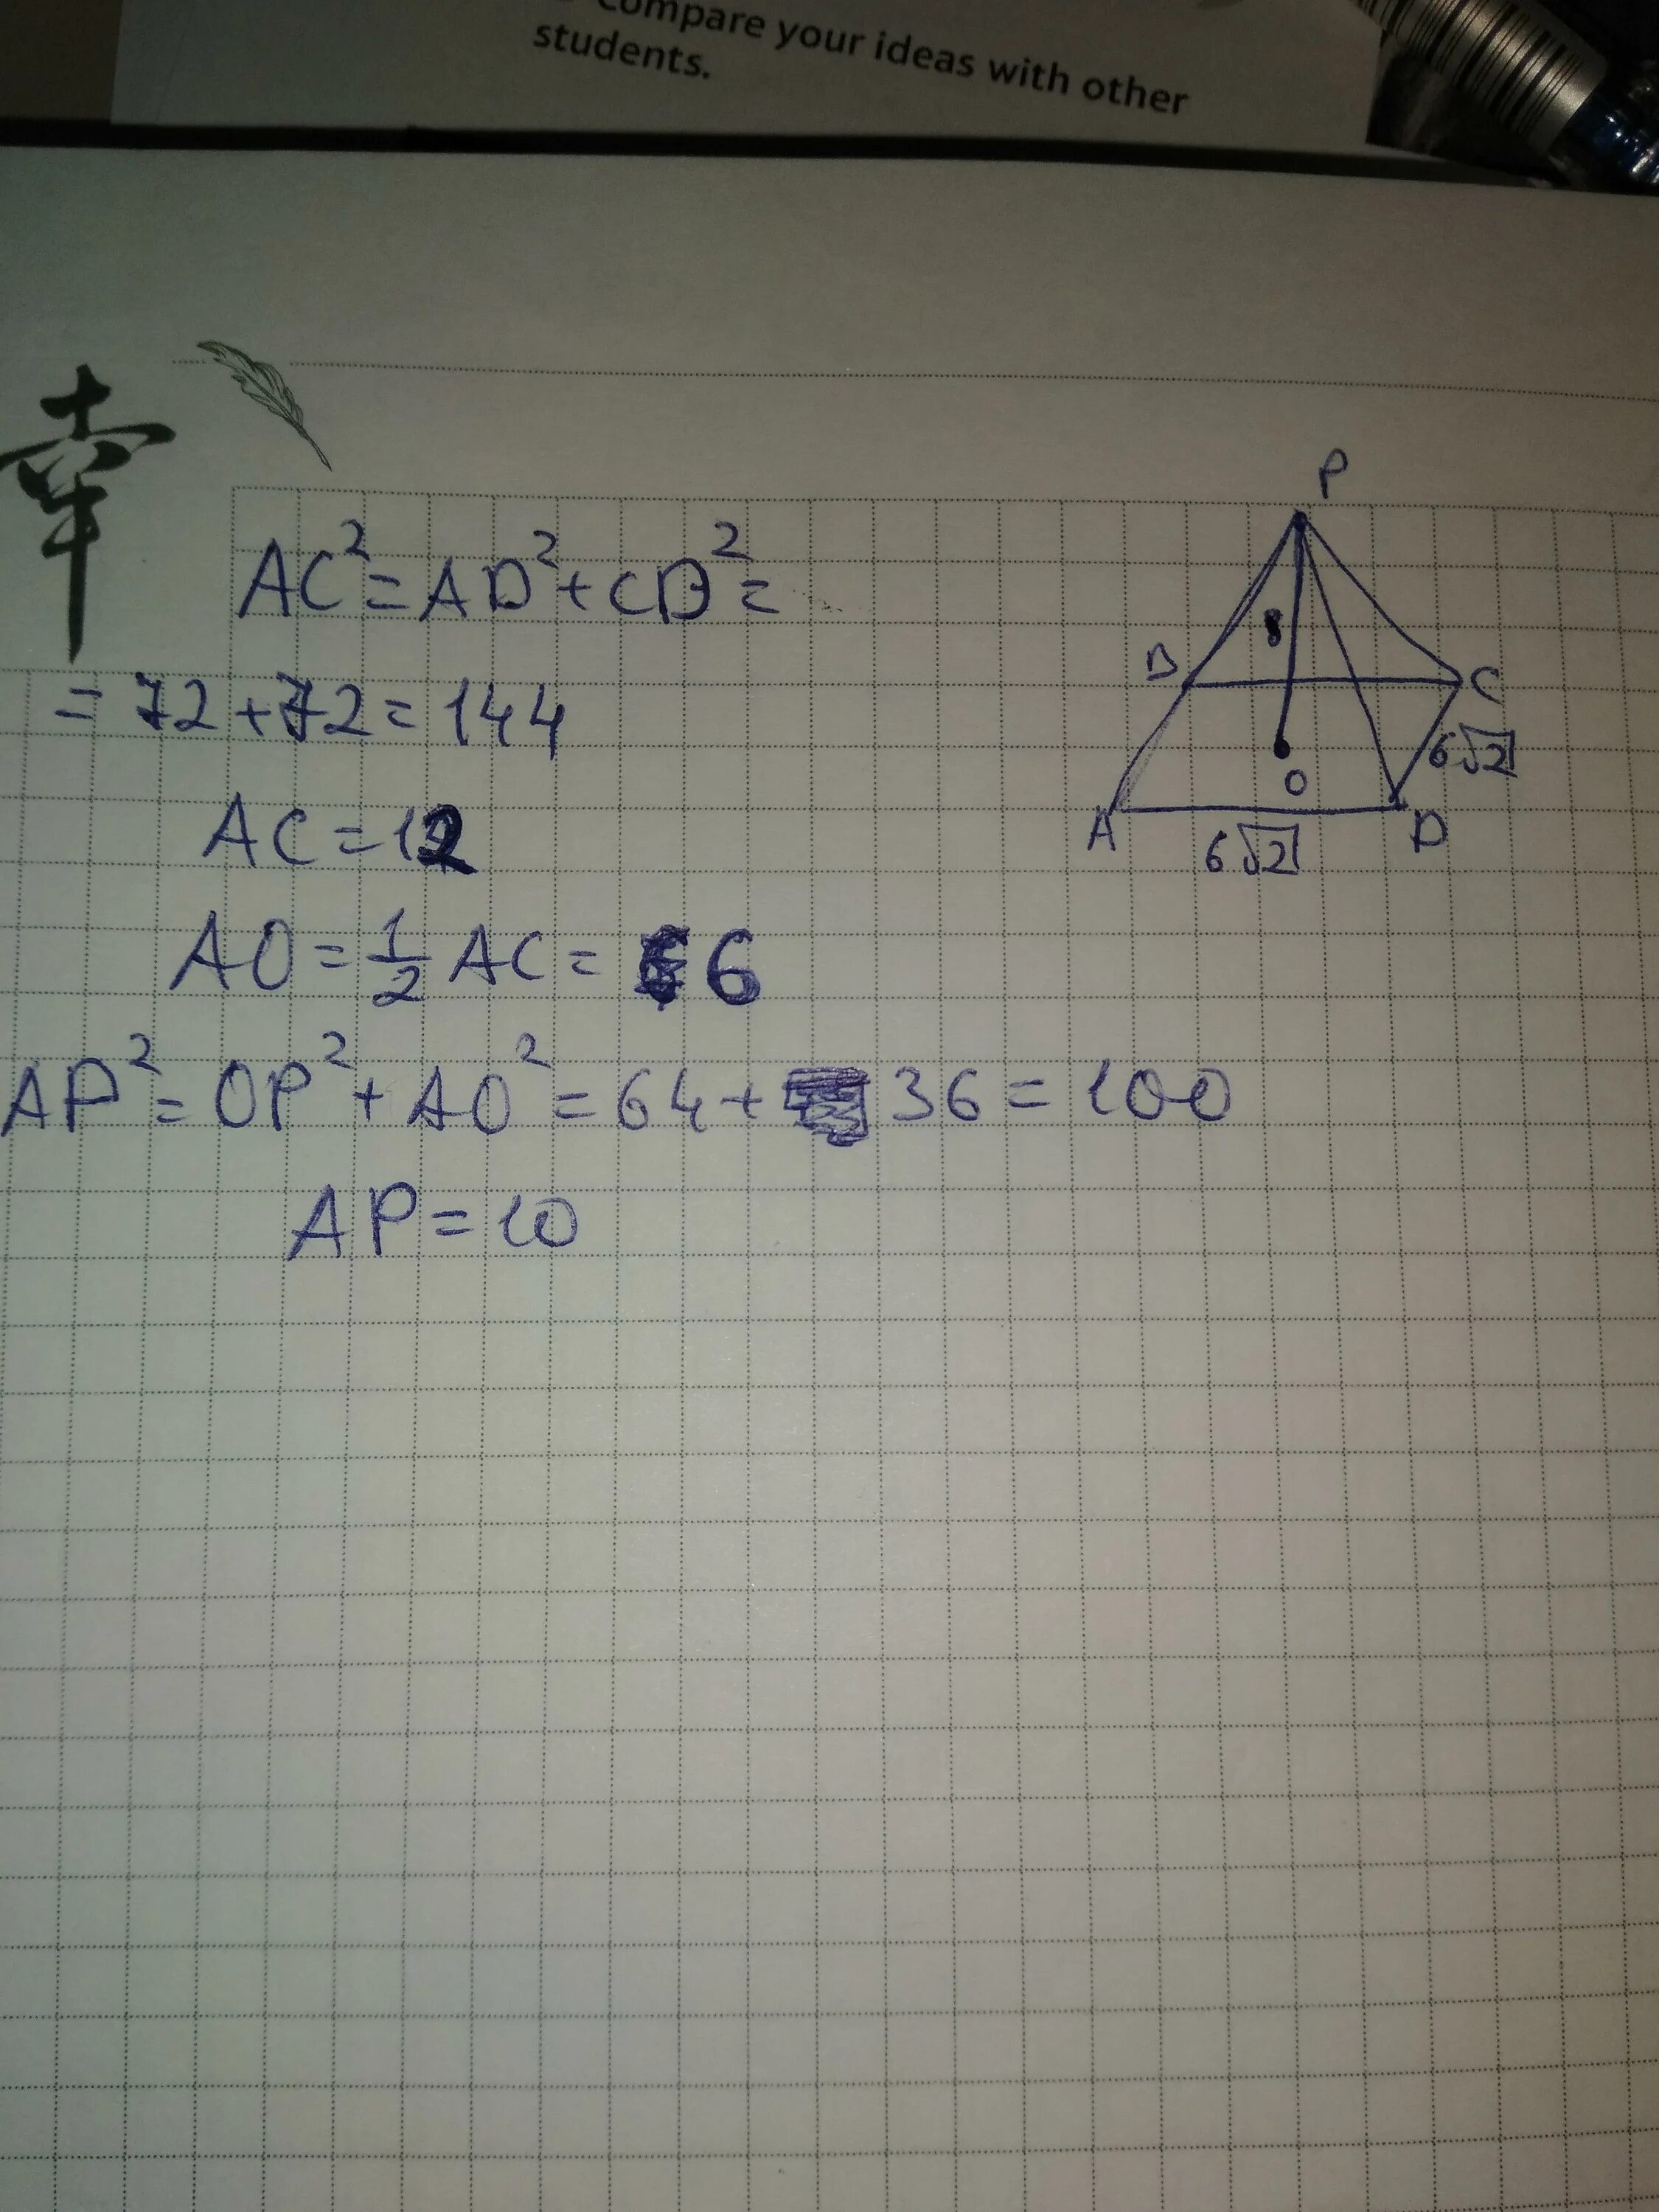 Compare your ideas with other
students.
幸
AC²=AD²+CD²=
=72+72=144
AC=12
AO=½AC=6
AP²=OP²+AO²=64+36=100
AP=10
P
8
B
C
6√2
O
A
D
6√2